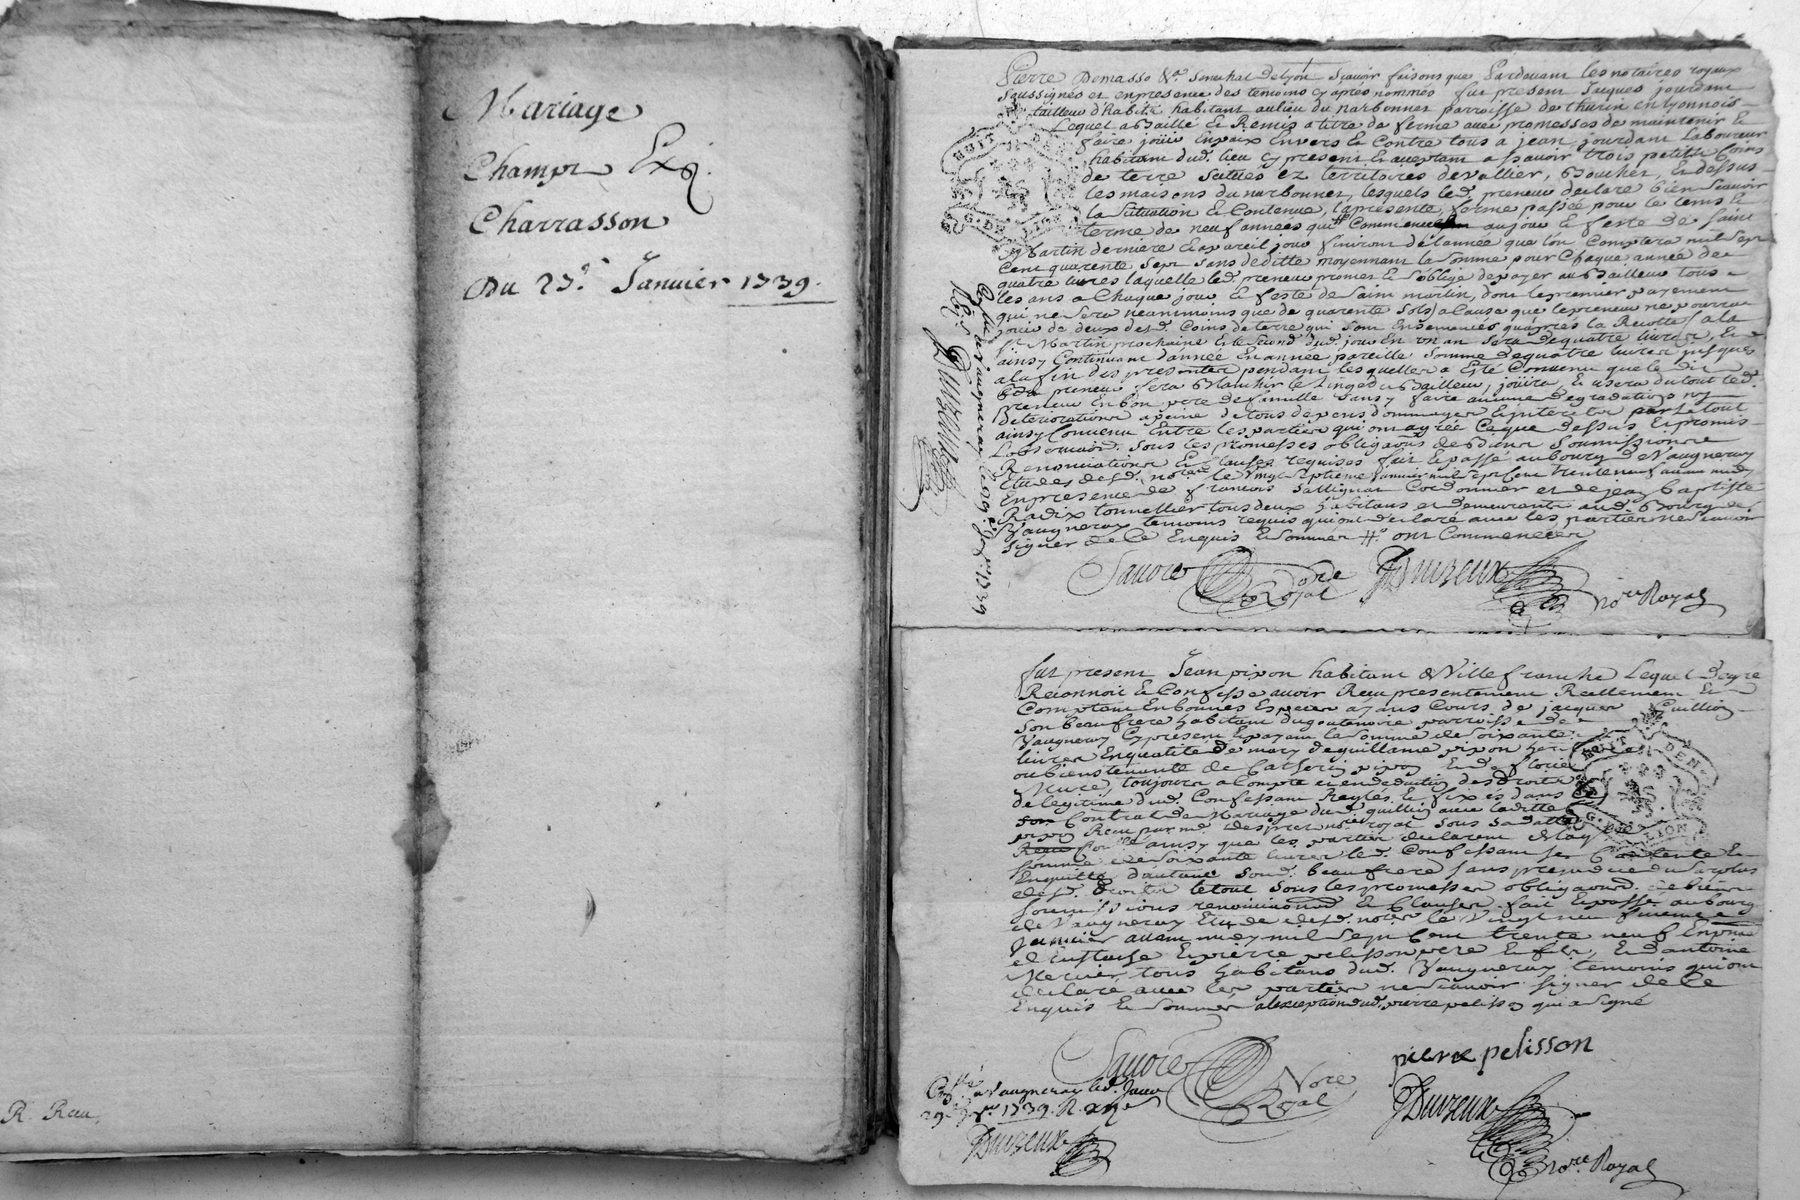 Mariage
Champt Exp.
Charrasson
Du 27.e Janvier 1739.
R. Reçu
Pierre Demasso &.a Senechal de Lyon Sçavoir faisons que Pardevant les notaires royaux
soussignés et en presence des temoins cy apres nommés fut present Jaques jourdam
tailleur d'habits habitant au lieu du narbonnet parroisse de thurin en lyonnois
Lequel a Baillé et Remis a titre de ferme avec promesses de maintenir et
faire joüir en paix envers et Contre tous a jean jourdam Laboureur
habitant dud. lieu cy present et acceptant a sçavoir trois petits Coins
de terre Situés ez territoires de vallier, Boucher, et dessus
les maisons du narbonnet, lesquels led. preneur declare bien sçavoir
la Situation et Contenue, la presente ferme passée pour le tems et
terme de neuf années qui # au jour et feste de saint
Martin derniere et a pareil jour finiront de l'année que l'on Comptera mil sept
Cent quarente sept sans deditte moyennant la somme pour Chaque année de
quatre livres laquelle led. preneur promet et s'oblige de payer au Bailleur tous
les ans a Chaque jour et feste de saint martin, dont le premier payement
qui ne sera neammoins que de quarente sols a Cause que le preneur ne pourra
jouir de deux desd. Coins de terre qui sont Ensemencés qu'apres la Recolte a la
St Martin prochaine et le second dud. jour En un an sera de quatre livres, et
ainsy Continuant d'année En année pareille somme de quatre livres jusques
a la fin des presentes pendant lesquelles a Esté Convenu que le dit
preneur fera Blanchir le Linge du Bailleur, joüira, et usera du tout led.
Preneur En bon pere de famille sans y faire aucune degradation ny
Deteriorations a peine de tous depens dommages et interets par le tout
ainsy Convenu Entre les parties qui ont agréé Ce que dessus et promis
L'observer. sous les promesses obligaons de Biens soumissions
Renonciations et Clauses requises fait et passé au bourg de Vaugneray
Etudes desd. notres le vingt Septieme Janvier mil sept Cent trente neuf avant midy
En presence de francois Cordonnier et de jean Baptiste
Radix tonnellier tous deux habitans et demeurants aud. Bourg de
Vaugneray temoins requis qui ont declaré avec les parties ne sçavoir
signer de Ce Enquis et sommes # ont Commencées
Savoie nore Royal JDuvzeux nore Royal
HUIT DEN. G. DE LION
JDuvzeux
fut present Jean pixon habitant de Villefranche Lequel De gré
Reconnoit et Confesse avoir Reçu presentement Reellement et
Comptant En bonnes Especes ayans Cours de jacques Guillin
Son beau frere habitant du parroisse de
Vaugneray Cy present et payant la somme de soixante
livres En qualité de mary de guillame pixon
ou biens tenante de Catherin pixon Et de
toujours a Compte et en deduction des droits
de legitime dud. Confessant Reglés et fixés dans
Contrat de Mariage dud. guillin avec laditte
pixon Reçu par me des notres royal sous sa datte
ainsy que les parties declarent de laq.
somme de soixante livres led. Confessant se Contente Et
En quitte d'autant sond. beaufrere sans prejudice du surplus
desd. droits le tout sous les promesses obligaons de biens
soumissions renonciaons et Clauses fait et passé au bourg
de Vaugneray Etude desd. notres le Vingt neufvieme
Janvier avant midy mil sept Cent trente neuf En pnce
d'Eustache Et pierre pelisson pere et fils, Et d'antoine
Mercier tous habitans dud. Vaugneray temoins qui ont
declaré avec les parties ne sçavoir signer de Ce
Enquis et sommés a l'exception dud. pierre pelisson qui a signé
Savoie Nore Royal
pierre pelisson
JDuvzeux nore Royal
HUIT DEN. G. DE LION
Collé a Vaugneray led. Jour
29e Jer 1739. R.
JDuvzeux